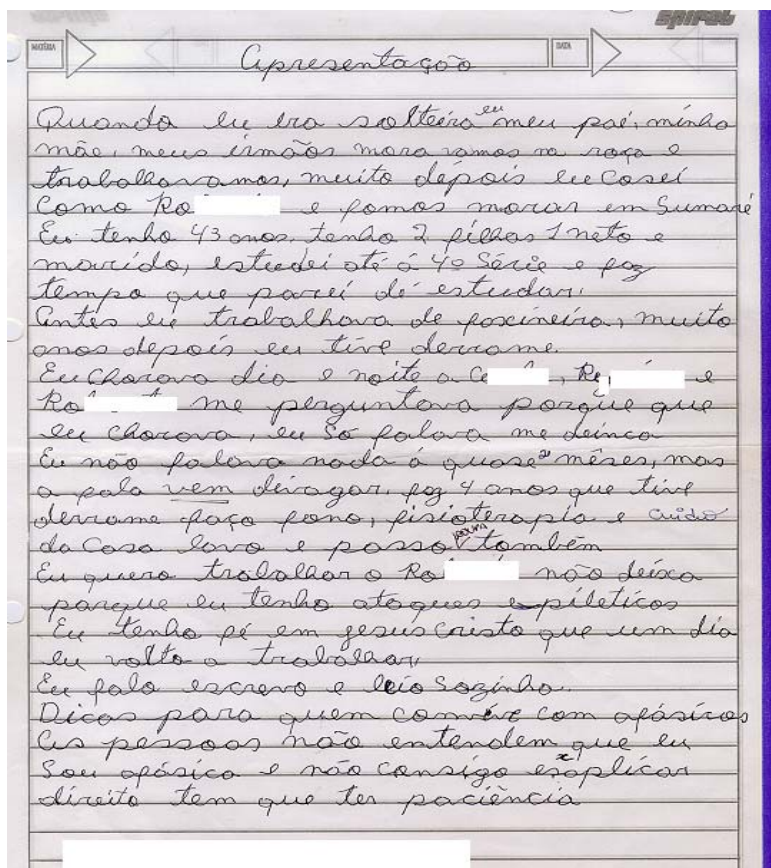 spiral
MATÉRIA
DATA
Apresentação
Quando eu era solteira eu meu pai, minha
mãe, meus irmãos mora vamos na roça e
trabalhavamos, muito depois eu casei
como Ro e fomos morar em Sumaré
Eu tenho 43 anos. tenho 2 filhas 1 neto e
marido, estudei até á 4º Série e faz
tempo que parei de estudar.
Antes eu trabalhava de faxineira, muito
anos depois eu tive derrame.
Eu chorava dia e noite a Ca, Re e
Ro me perguntava porque que
eu chorava, eu só falava me deinca
Eu não falava nada á quase 2 mêses, mas
a fala vem devagar, faz 4 anos que tive
derrame faço fono, fisioterapia e cuido
da casa lavo e passo roupa também
Eu quero trabalhar o Ro não deixa
parque eu tenho ataques epileticos
Eu tenho fé em jesus cristo que um dia
eu volto a trabalhar,
Eu falo escrevo e leio Sozinho.
Dicas para quem convive com afásicos
As pessoas não entendem que eu
Sou afásica e não consigo explicar
direito tem que ter paciência